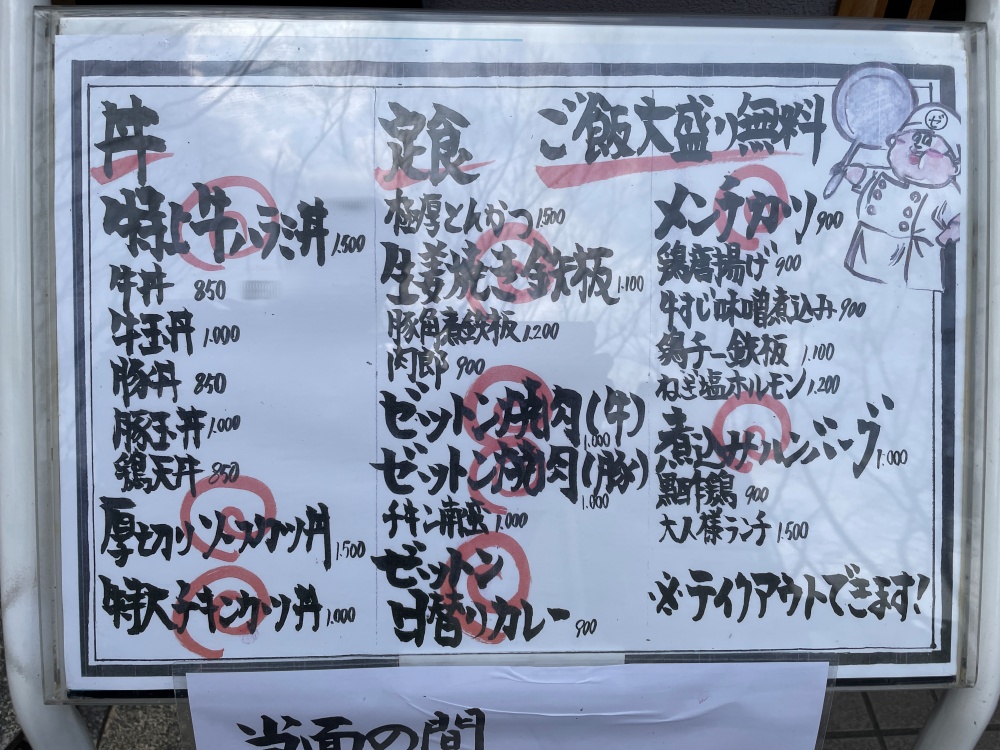 丼
特上牛ハラミ丼 1.500
牛丼 850
牛玉丼 1.000
豚丼 850
豚玉丼 1.000
鶏天丼 850
厚切りソースカツ丼 1.500
特大チキンカツ丼 1.000
定食
極厚とんかつ 1.500
生姜焼き鉄板 1.100
豚角煮鉄板 1.200
肉郎 900
ゼットン焼肉(牛) 1.000
ゼットン焼肉(豚) 1.000
チキン南蛮 1.000
ゼットン
日替りカレー 900
ご飯大盛り無料
メンチカツ 900
鶏唐揚げ 900
牛すじ味噌煮込み 900
鶏チー鉄板 1.100
ねぎ塩ホルモン 1.200
煮込みハンバーグ 1.000
黒酢鶏 900
大人様ランチ 1.500
※テイクアウトできます!
ゼ
当面の間